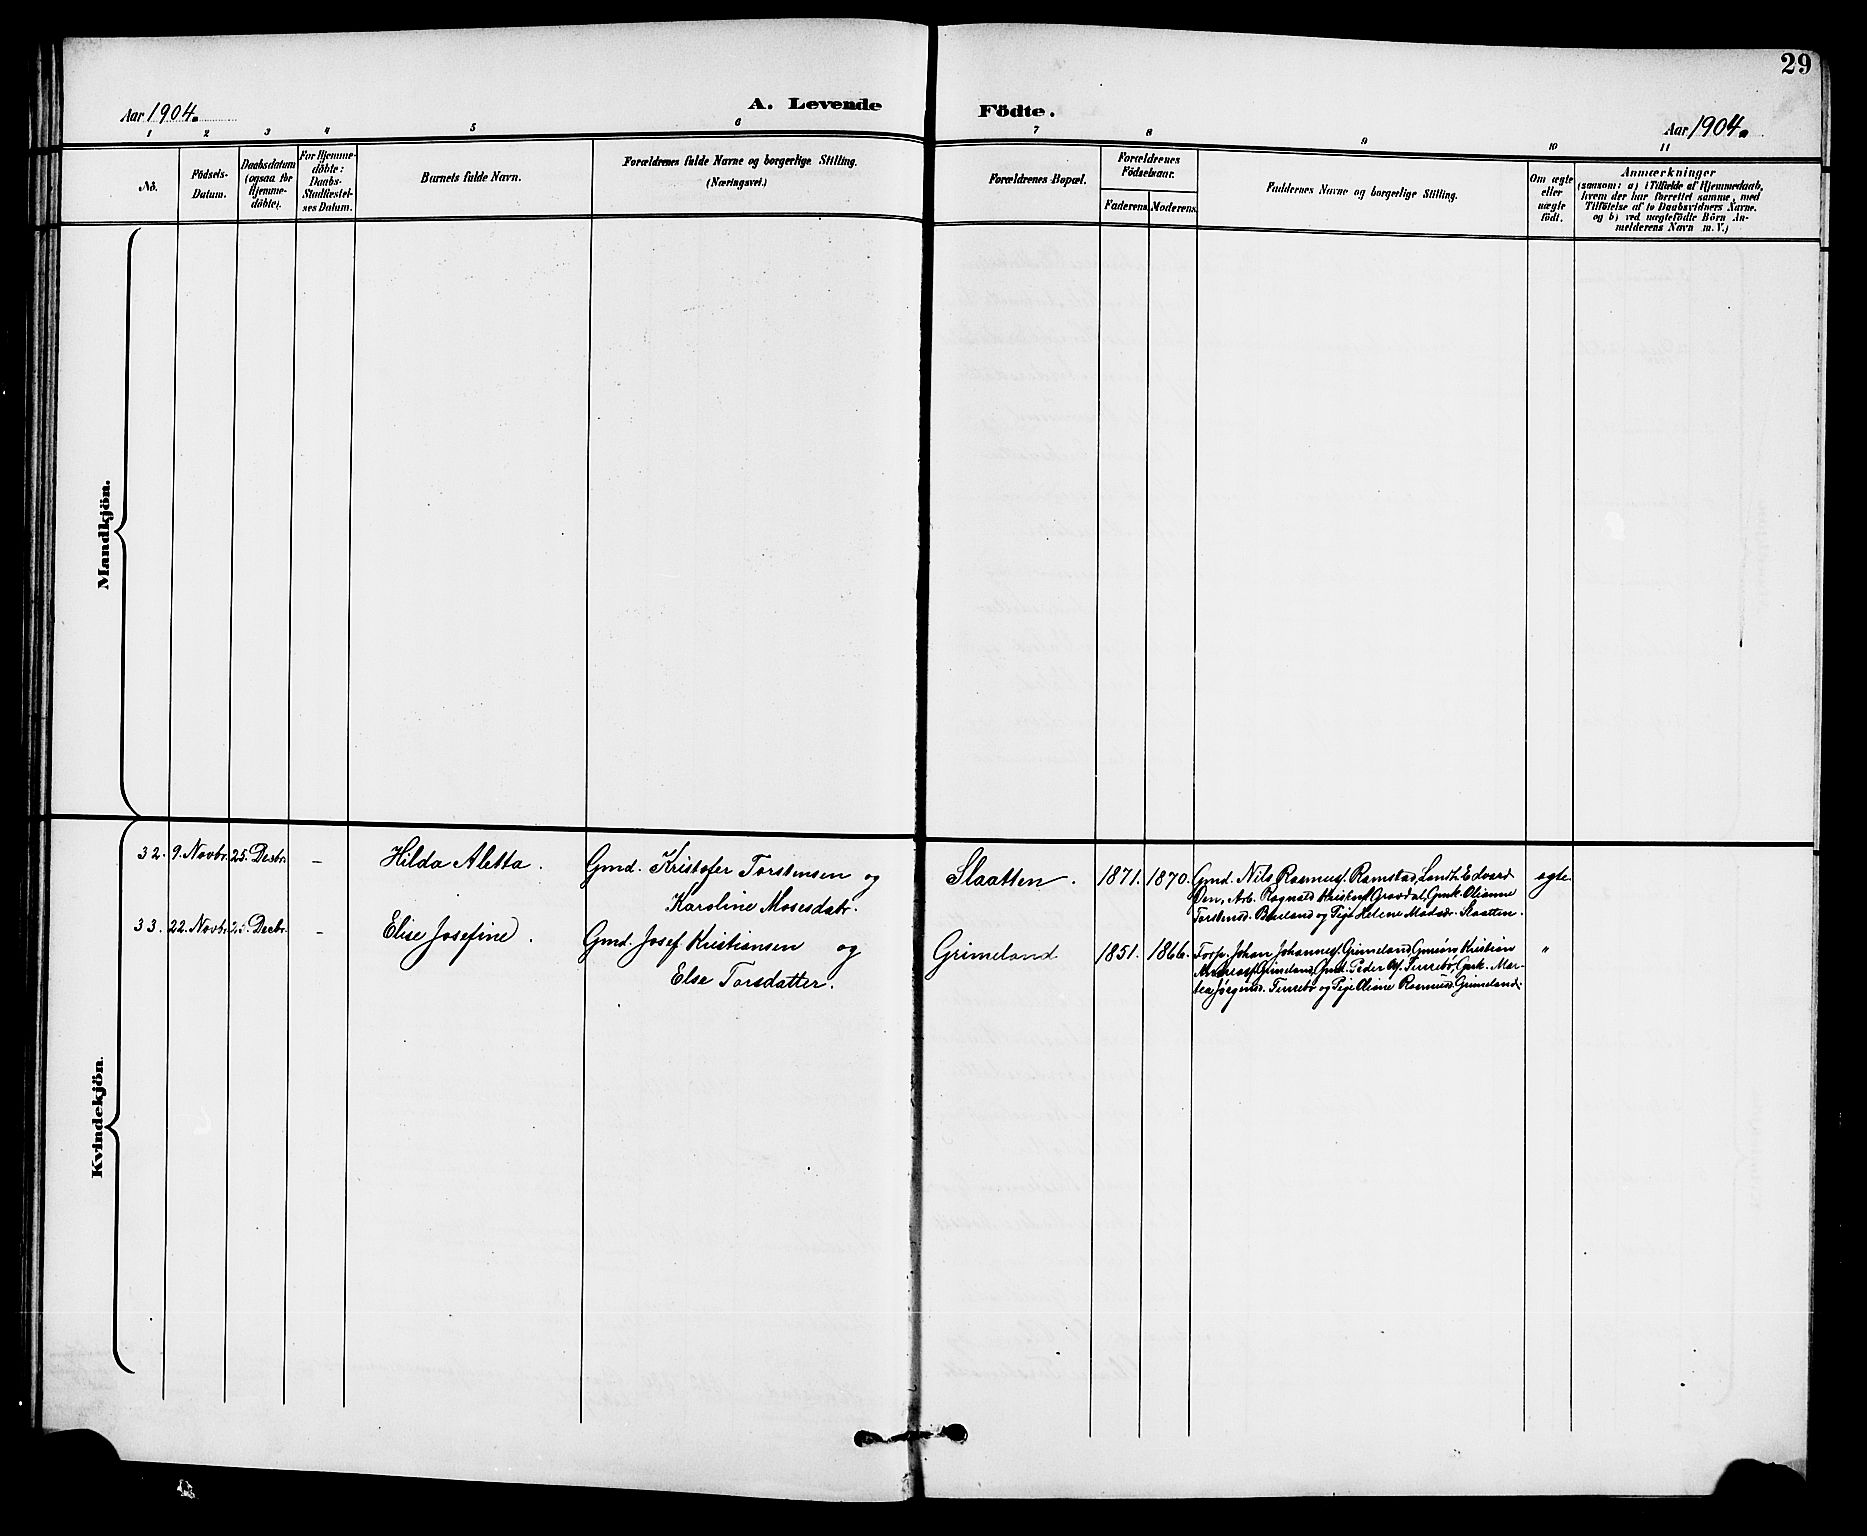 29
Aar 1904.
A. Levende
Födte.
Aar 1904.
1 2 3 4 5 6 7 8 9 10 11
No.
Födsels-
Datum.
Daabsdatum
(ogsaa for
Hjemme-
döbte).
For Hjemme-
döbte:
Daabs-
Stadfæstel-
ses Datum.
Barnets fulde Navn.
Forældrenes fulde Navne og borgerlige Stilling.
(Næringsvei.)
Forældrenes Bopæl.
Forældrenes
Födselsaar.
Faderens. Moderens.
Faddernes Navne og borgerlige Stilling.
Om ægte
eller
uægte
födt.
Anmærkninger
(saasom: a) i Tilfælde af Hjemmedaab,
hvem der har forrettet samme, med
Tilföielse af to Daabsvidners Navne.
og b) ved uægtefödte Börn An-
melderens Navn m. V.)
Mandkjön.
Kvindekjön.
32. 9. Novbr. 25. Decbr. – Hilda Aletta. Gmd. Kristofer Torstensen og
Karoline Mosesdatr.
Slaatten. 1871. 1870.
Gmd. Nils Rasmusf. Ramstad, Landh. Edvard
Øen, Arb. Ragnald Kristenf. Gravdal, Gmk. Olianne
Torstensd. Birkeland og Pige Helene Madsd. Slaatten.
ægte
33. 22. Novbr. 25. Decbr. – Elise Josefine. Gmd. Josef Kristiansen og
Else Torsdatter.
Grimeland 1851. 1866.
Forp. Johan Johannesf. Grimeland, Gmsøn Kristian
Andreasf. Grimeland, Gmd. Peder Olf. Tinnebø, Gmk. Mar-
tea Jørgensd. Tinnebø og Pige Oliane Rasmusd. Grimeland.
"